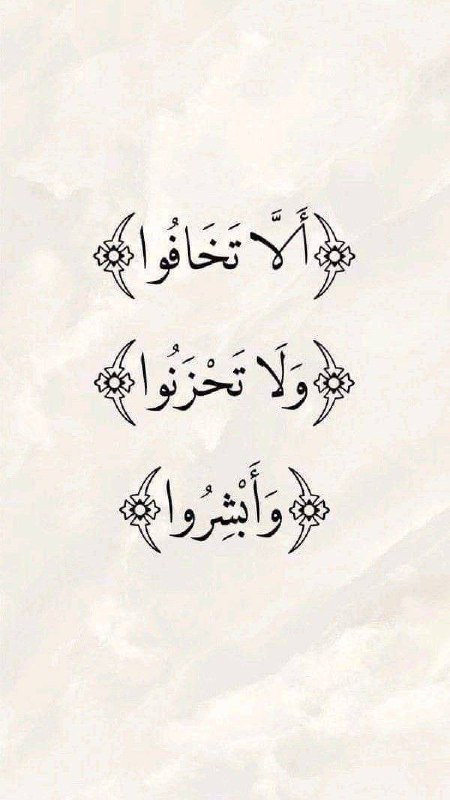 ﴿أَلَّا تَخَافُوا﴾
﴿وَلَا تَحْزَنُوا﴾
﴿وَأَبْشِرُوا﴾